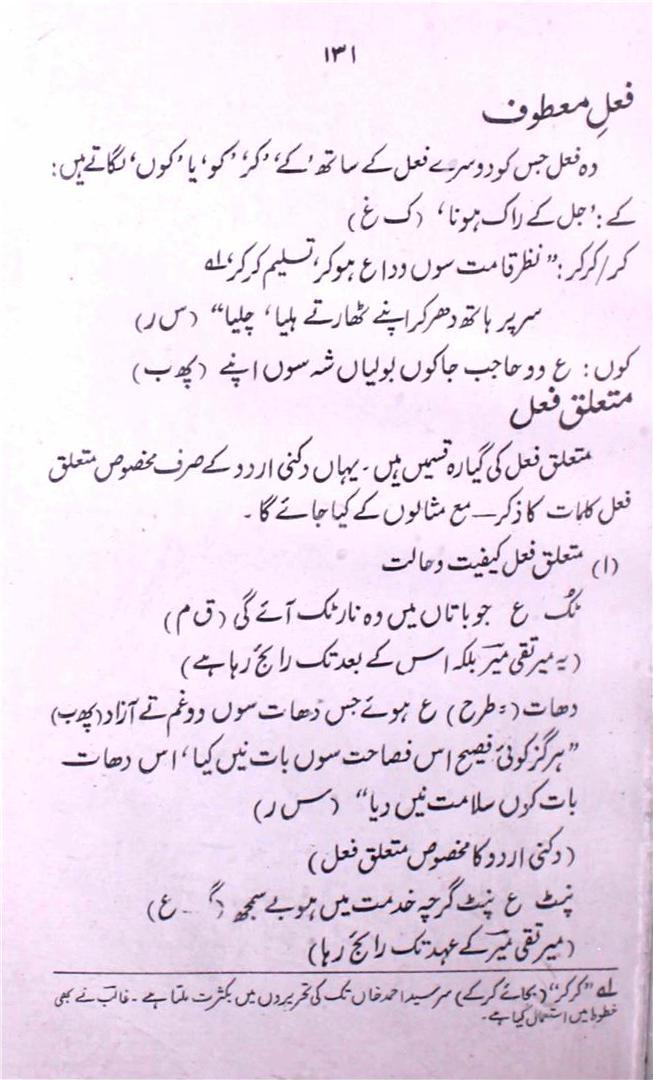 ۱۳۱
فعلِ معطوف
وہ فعل جس کو دوسرے فعل کے ساتھ ’کے‘، ’کر‘، ’کو‘، یا ’کوں‘، لگاتے ہیں:
کے: ’جل کے راک ہونا‘، (ک غ)
کر/کرکر: ”نظر قامت سوں وداع ہوکر، تسلیم کرکر،لہ
سر پر ہاتھ دھر کر اپنے ٹھارتے ہلیا، چلیا“ (س ر)
کوں: ع وو حاجب جاکوں بولیاں شہ سوں اپنے (پھ ب)
متعلق فعل
متعلق فعل کی گیارہ قسمیں ہیں۔ یہاں دکنی اردو کے صرف مخصوص متعلق
فعل کلمات کا ذکر— مع مثالوں کے کیا جائے گا۔
(۱) متعلق فعل کیفیت و حالت
ٹُک ع جو باتاں میں وہ نار ٹک آئے گی (ق م)
(یہ میر تقی میرؔ بلکہ اس کے بعد تک رائج رہا ہے)
دھات (= طرح) ع ہوئے جس دھات سوں وو غم تے آزاد (پھ ب)
”ہرگز کوئی فصیح اس فصاحت سوں بات نیں کیا، اس دھات
بات کوں سلامت نیں دیا“ (س ر)
(دکنی اردو کا مخصوص متعلق فعل)
نپٹ ع نپٹ گرچہ خدمت میں ہو بے سمجھ (گ۔ ع)
(میر تقی میرؔ کے عہد تک رائج رہا)
لہ ”کرکر“ (بجائے کرکے) سرسید احمد خاں تک کی تحریروں میں بکثرت ملتا ہے۔ غالبؔ نے بھی
خطوط میں استعمال کیا ہے۔